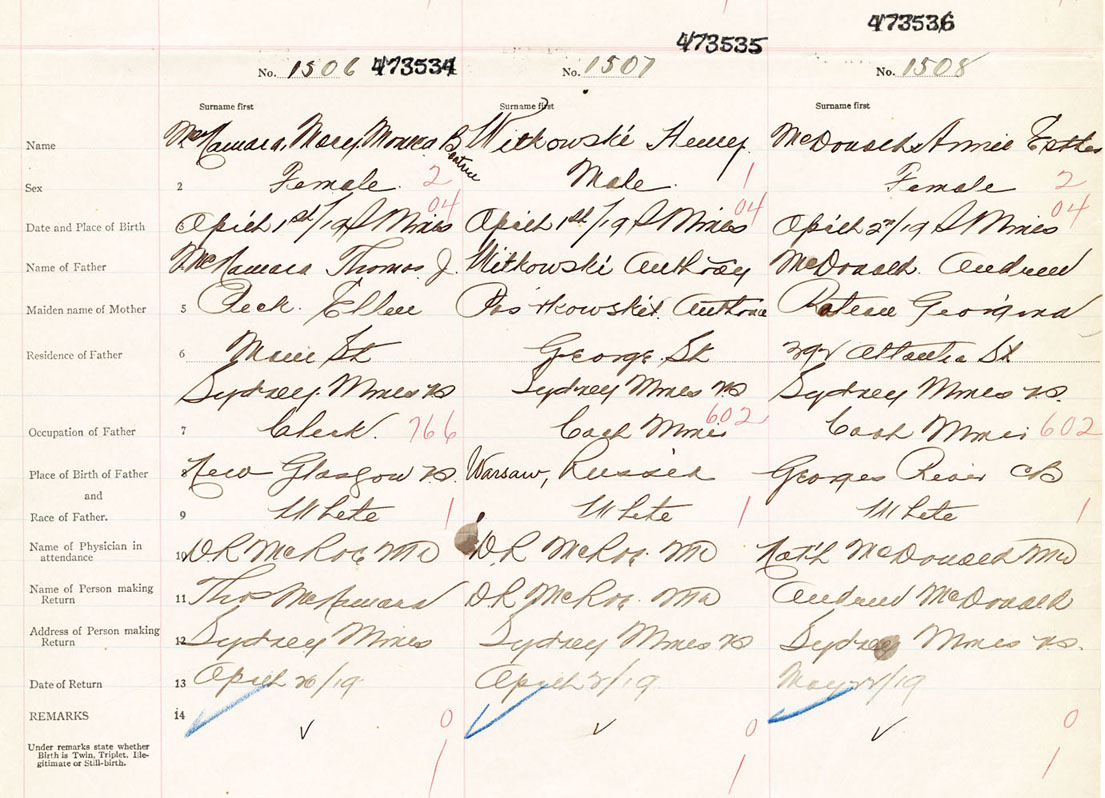 473536
473535
No. 1506 473534 No. 1507 No. 1508
Surname first Surname first Surname first
Name McNamara, Mary, Monica Beatrice Witkowski Henry. McDonald Annie Esther
Sex 2 Female. 2 Male. 1 Female 2
04 04 04
Date and Place of Birth April 1st/19 S Mines April 1st/19 S Mines April 2nd/19 S Mines
Name of Father McNamara Thomas J. Witkowski Anthony McDonald. Andrew
Maiden name of Mother 5 Peck. Ellen Georgina
Residence of Father 6 Main St George. St Atlantic St
Sydney Mines NS Sydney Mines NS Sydney Mines NS.
Occupation of Father 7 Clerk. 766 Coal Miner 602 Coal Miner 602
Place of Birth of Father New Glasgow NS. Warsaw, Russia Georges River CB
and
Race of Father. 9 White 1 White 1 White 1
Name of Physician in
attendance 10 D.R McRae. MD D.R McRae. MD McDonald MD
Name of Person making
Return 11 Thos McNamara D.R McRae. MD Andrew McDonald
Address of Person making
Return 12 Sydney Mines Sydney Mines NS Sydney Mines NS.
Date of Return 13 April 26/19 April /19. May /19
REMARKS 14
0 0 0
Under remarks state whether
Birth is Twin, Triplet, Ille-
gitimate or Still-birth.
1 1 1